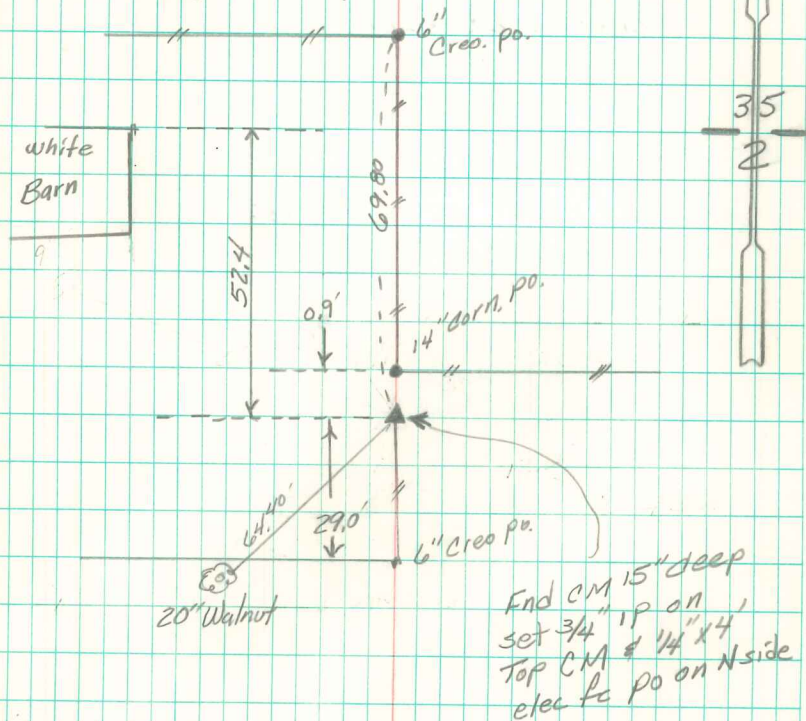 6" Creo. po.
35
2
white
Barn
69.80
52.4
0.9'
14" corn. po.
64.40'
29.0'
6" Creo po.
20" Walnut
Fnd CM 15" deep
set 3/4" IP on
Top CM & 1/4" x 4'
elec fc po on N side